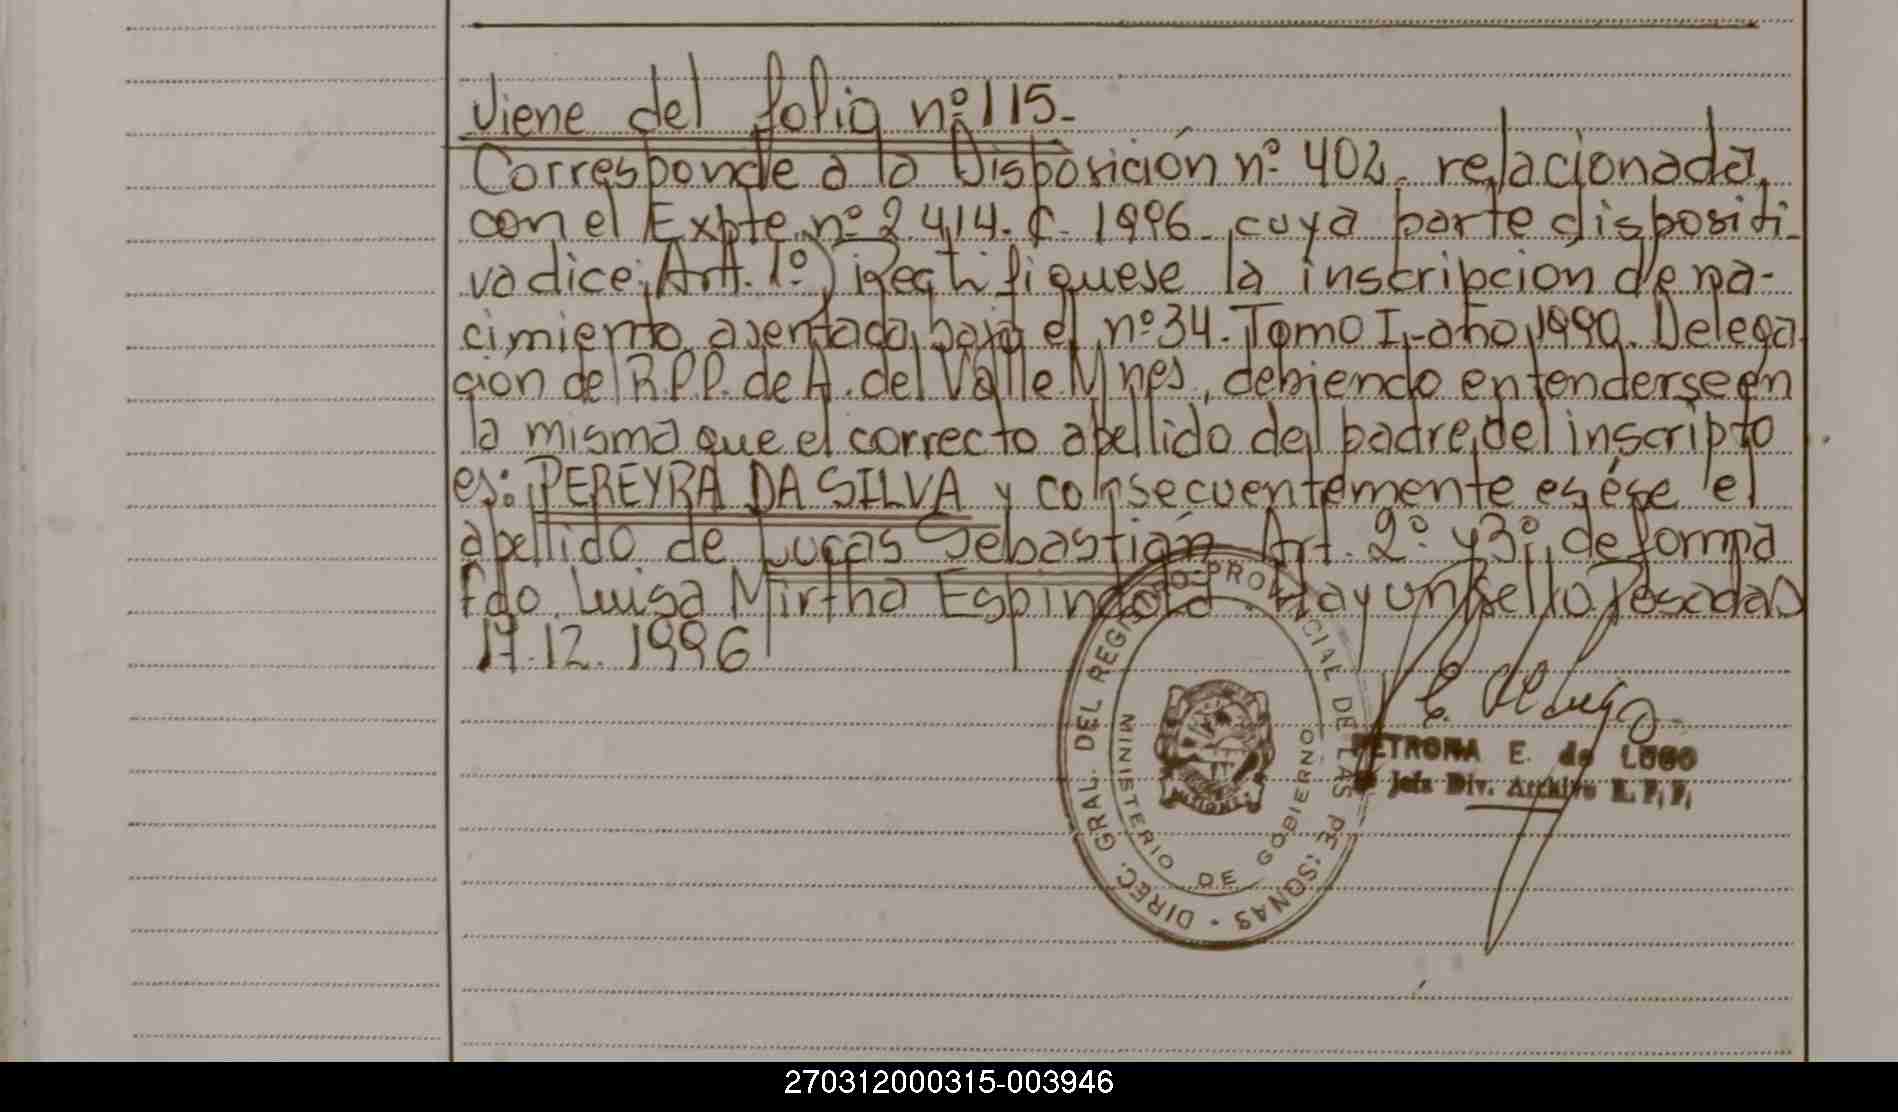 Viene del folio nº 115-
Corresponde a la Disposición nº 402. relacionada
con el Expte nº 2.414. C. 1996. cuya parte dispositi-
va dice: Art. 1º) Rectifiquese la inscripcion de na-
cimiento asentada bajo el nº 34. Tomo I-año 1990. Delega
cion del R.P.P. de A. del Valle Mnes, debiendo entenderse en
la misma que el correcto apellido del padre del inscripto
es: PEREYRA DA SILVA y consecuentemente es ése el
apellido de Lucas Sebastián Art. 2º y 3º de forma
Fdo. Luisa Mirtha Espindola. Hay un sello. Posadas
17.12.1996
DIREC. GRAL. DEL REGISTRO PROVINCIAL DE LAS PERSONAS -
MINISTERIO DE GOBIERNO
E. de Lugo
PETRONA E. de LUGO
Jefa Div. Archivo R. P. P.
270312000315-003946